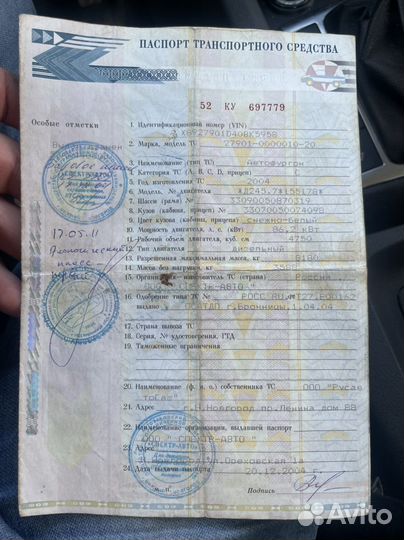 ПАСПОРТ ТРАНСПОРТНОГО СРЕДСТВА
52 КУ 697779
Особые отметки
1. Идентификационный номер (VIN)
2. Марка, модель ТС 27901-0000010-20
3. Наименование (тип ТС) Автофургон
4. Категория ТС (А, В, С, D, прицеп) С
5. Год изготовления ТС 2004
6. Модель, № двигателя *Д245.7*155178*
7. Шасси (рама) № 33090050870319
8. Кузов (кабина, прицеп) № 33070050074098
9. Цвет кузова (кабины, прицепа) снежно-белый
10. Мощность двигателя, л. с. (кВт) 86,2 кВт
11. Рабочий объем двигателя, куб. см 4750
12. Тип двигателя дизельный
13. Разрешенная максимальная масса, кг 8180
14. Масса без нагрузки, кг
15. Организация-изготовитель ТС (страна) Россия
ООО "СПЕКТР-АВТО"
16. Одобрение типа ТС №
г.Бронницы 1.04.04
17. Страна вывоза ТС
18. Серия, № удостоверения, ГТД
19. Таможенные ограничения
20. Наименование (ф. и. о.) собственника ТС ООО "Русав
тоГаз"
21. Адрес г.Н.Новгород пр.Ленина дом 88
22. Наименование организации, выдавшей паспорт
ООО "СПЕКТР-АВТО"
23. Адрес
Н.Новгород ул.Ореховская 1а
24. Дата выдачи паспорта 20.12.2004 г.
Подпись
17.05.11
СПЕКТР-АВТО
Avito